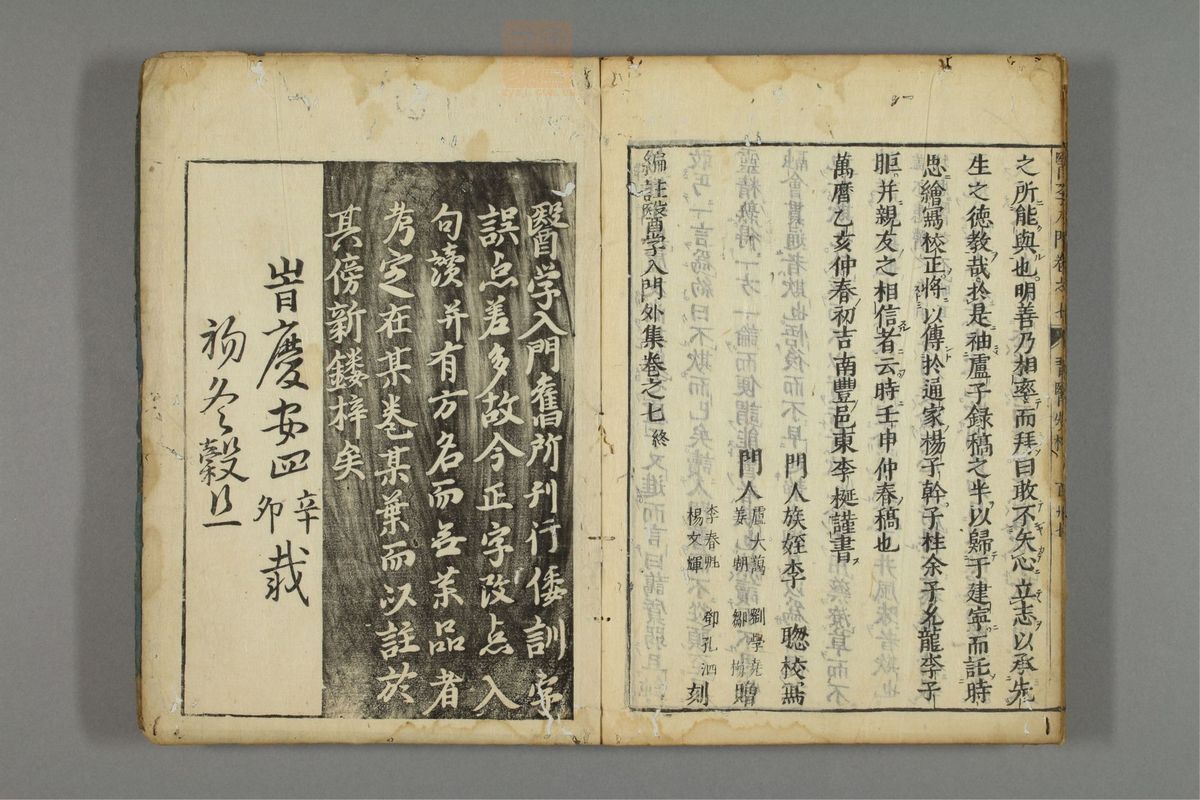 之所能與也明善乃相率而拜曰敢不矢心立志以承先
生之德教哉於是袖盧子錄稿之半以歸于建寧而託時
忠繪寫校正將以傳於通家楊子幹子桂余子允龍李子
眶并親友之相信者云時壬申仲春稿也
萬曆乙亥仲春初吉南豐邑東李梴謹書
門人族姪李聰校寫
門人盧大藹姜朝劉學堯鄒梅贈
李春魁楊文輝鄧孔泗刻
編註醫學入門外集卷之七終
醫学入門舊所刊行倭訓字
誤点差多故今正字改点入
句讀并有方名而無茱品者
考定在某卷某葉而以註於
其傍新鏤梓矣
旹慶安四辛卯載
初冬穀旦